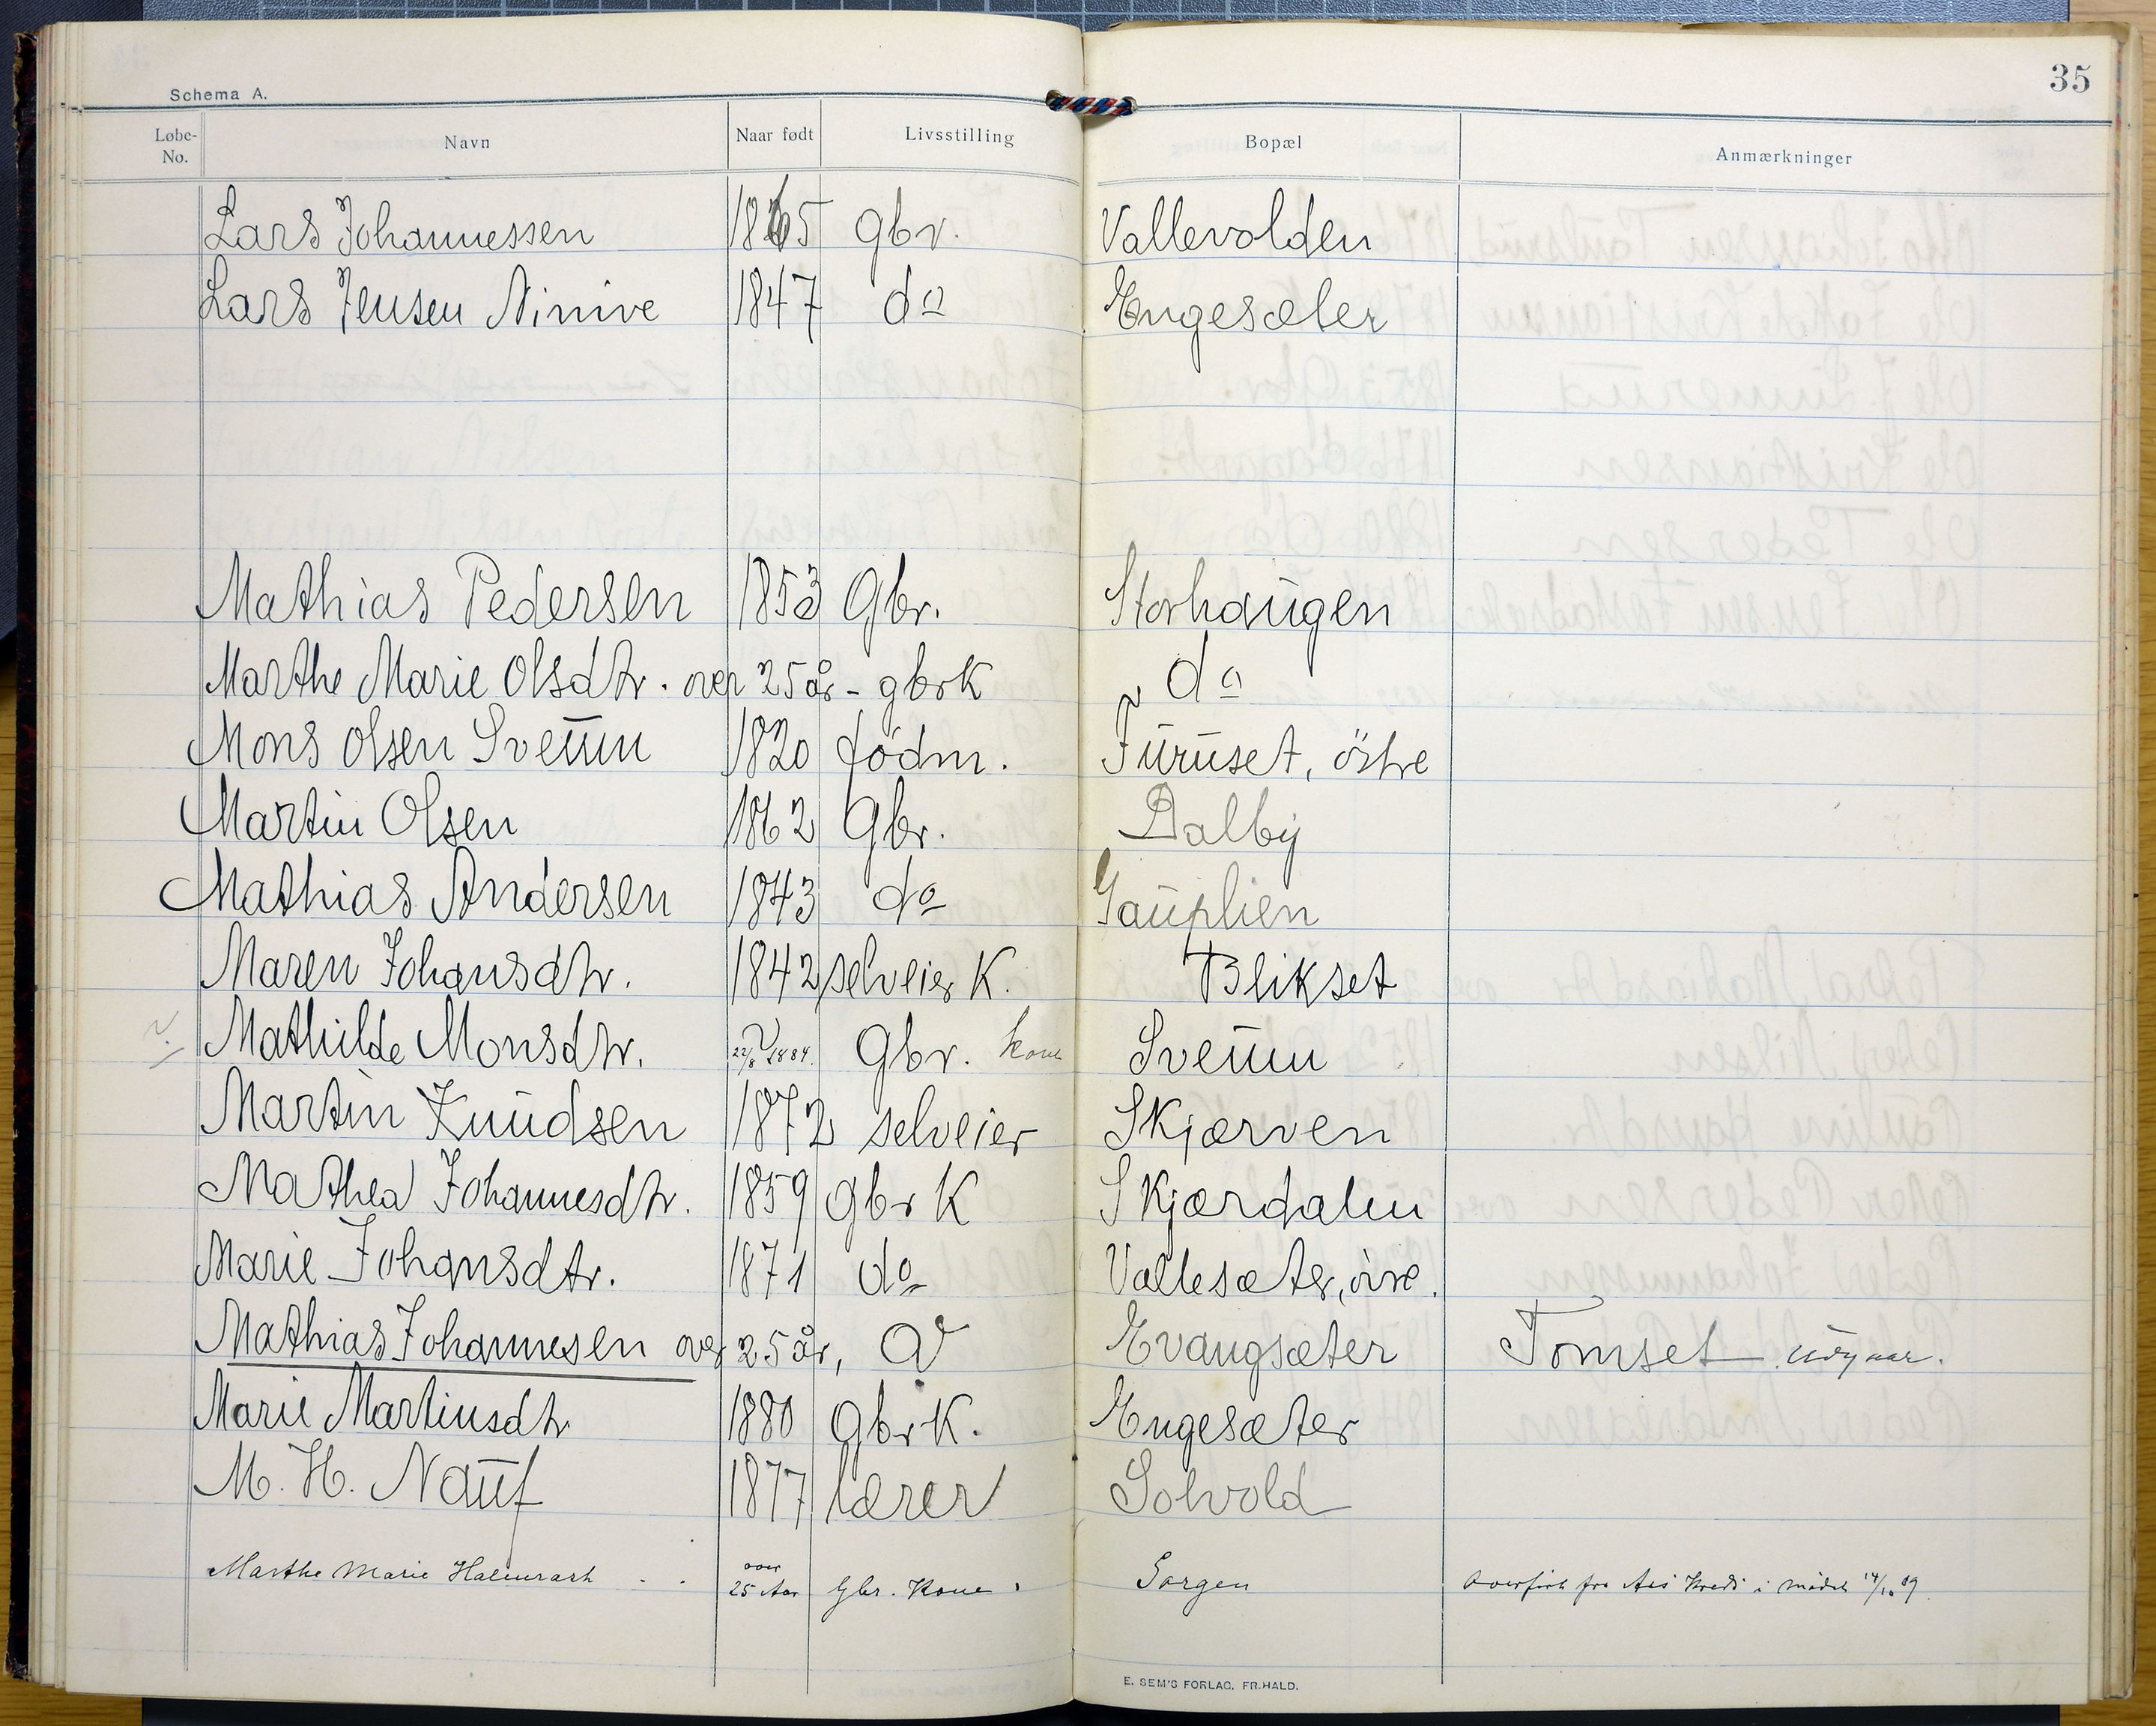 35
Schema A.
Løbe-No. Navn Naar født Livsstilling Bopæl Anmærkninger
Lars Johannessen 1865 gbr. Vallevolden
Lars Jensen Ninive 1847 do Engesæter
Mathias Pedersen 1853 Gbr. Storhaugen
Marthe Marie Olsdtr. over 25 år - gbrk do
Mons Olsen Sveum 1820 födm. Furuset, östre
Martin Olsen 1862 Gbr. Dalby
Mathias Andersen 1843 do Gauplien
Maren Johansdtr. 1842 selveier K. Blikset
Mathilde Monsdtr. 22/8 1884. Gbr. kone Sveum
Martin Knudsen 1872 selveier Skjærven
Mathea Johannesdtr. 1859 gbr K Skjærdalen
Marie Johansdtr. 1871 do Vallesæter, övre.
Mathias Johannesen over 25 år, Evangsæter Tomset
Marie Martinsdtr 1880 GbrK. Engesæter
M. H. Nauf 1877 lærer Solvold
Marthe Marie Halvorsdt over 25 Aar Gbr. Kone. Sorgen Overfört fra Aas Kreds i mödet 14/10 09.
E. SEM'S FORLAG, FR.HALD.